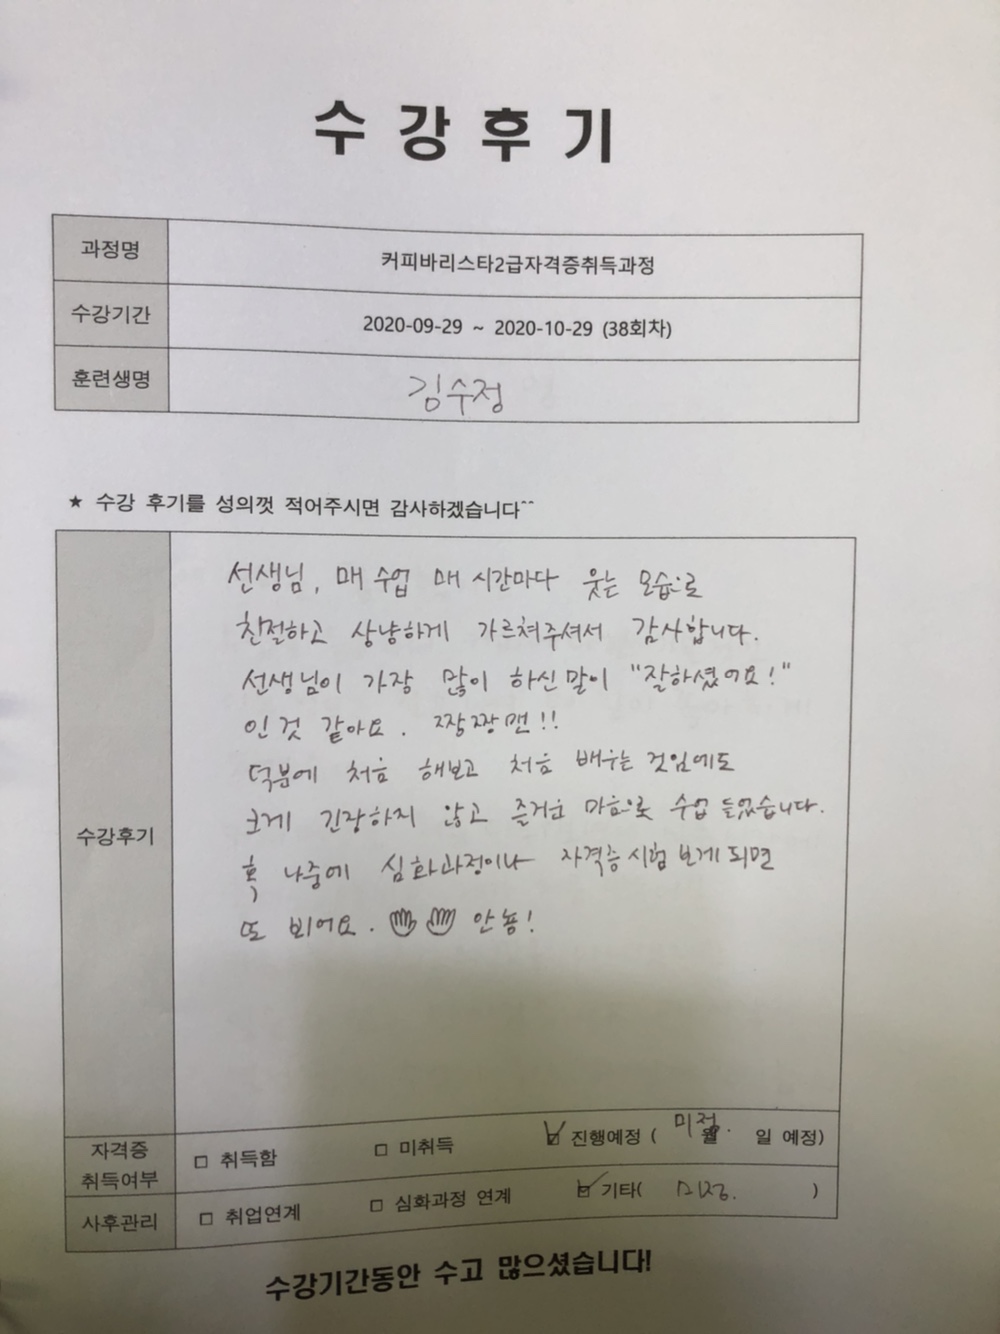 수강후기
과정명 커피바리스타2급자격증취득과정
수강기간 2020-09-29 ~ 2020-10-29 (38회차)
훈련생명 김수정
★ 수강 후기를 성의껏 적어주시면 감사하겠습니다^^
수강후기
선생님, 매 수업 매 시간마다 웃는 모습으로
친절하고 상냥하게 가르쳐주셔서 감사합니다.
선생님이 가장 많이 하신 말이 "잘하셨어요!"
인 것 같아요. 짱짱맨!!
덕분에 처음 해보고 처음 배우는 것임에도
크게 긴장하지 않고 즐거운 마음으로 수업 들었습니다.
혹, 나중에 심화과정이나 자격증 시험 보게 되면
또 뵈어요. 안뇽!
자격증 취득여부 □ 취득함 □ 미취득 ☑ 진행예정 ( 미정. 월 일 예정)
사후관리 □ 취업연계 □ 심화과정 연계 ☑ 기타( 미정. )
수강기간동안 수고 많으셨습니다!